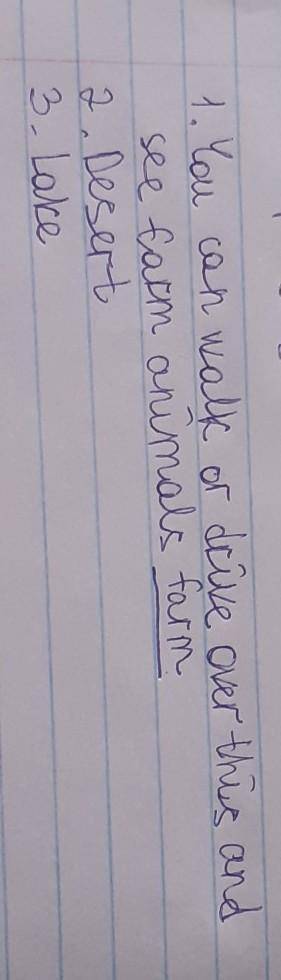 1. You can walk or drive over this and
see farm animals farm.
2. Desert
3. Lake